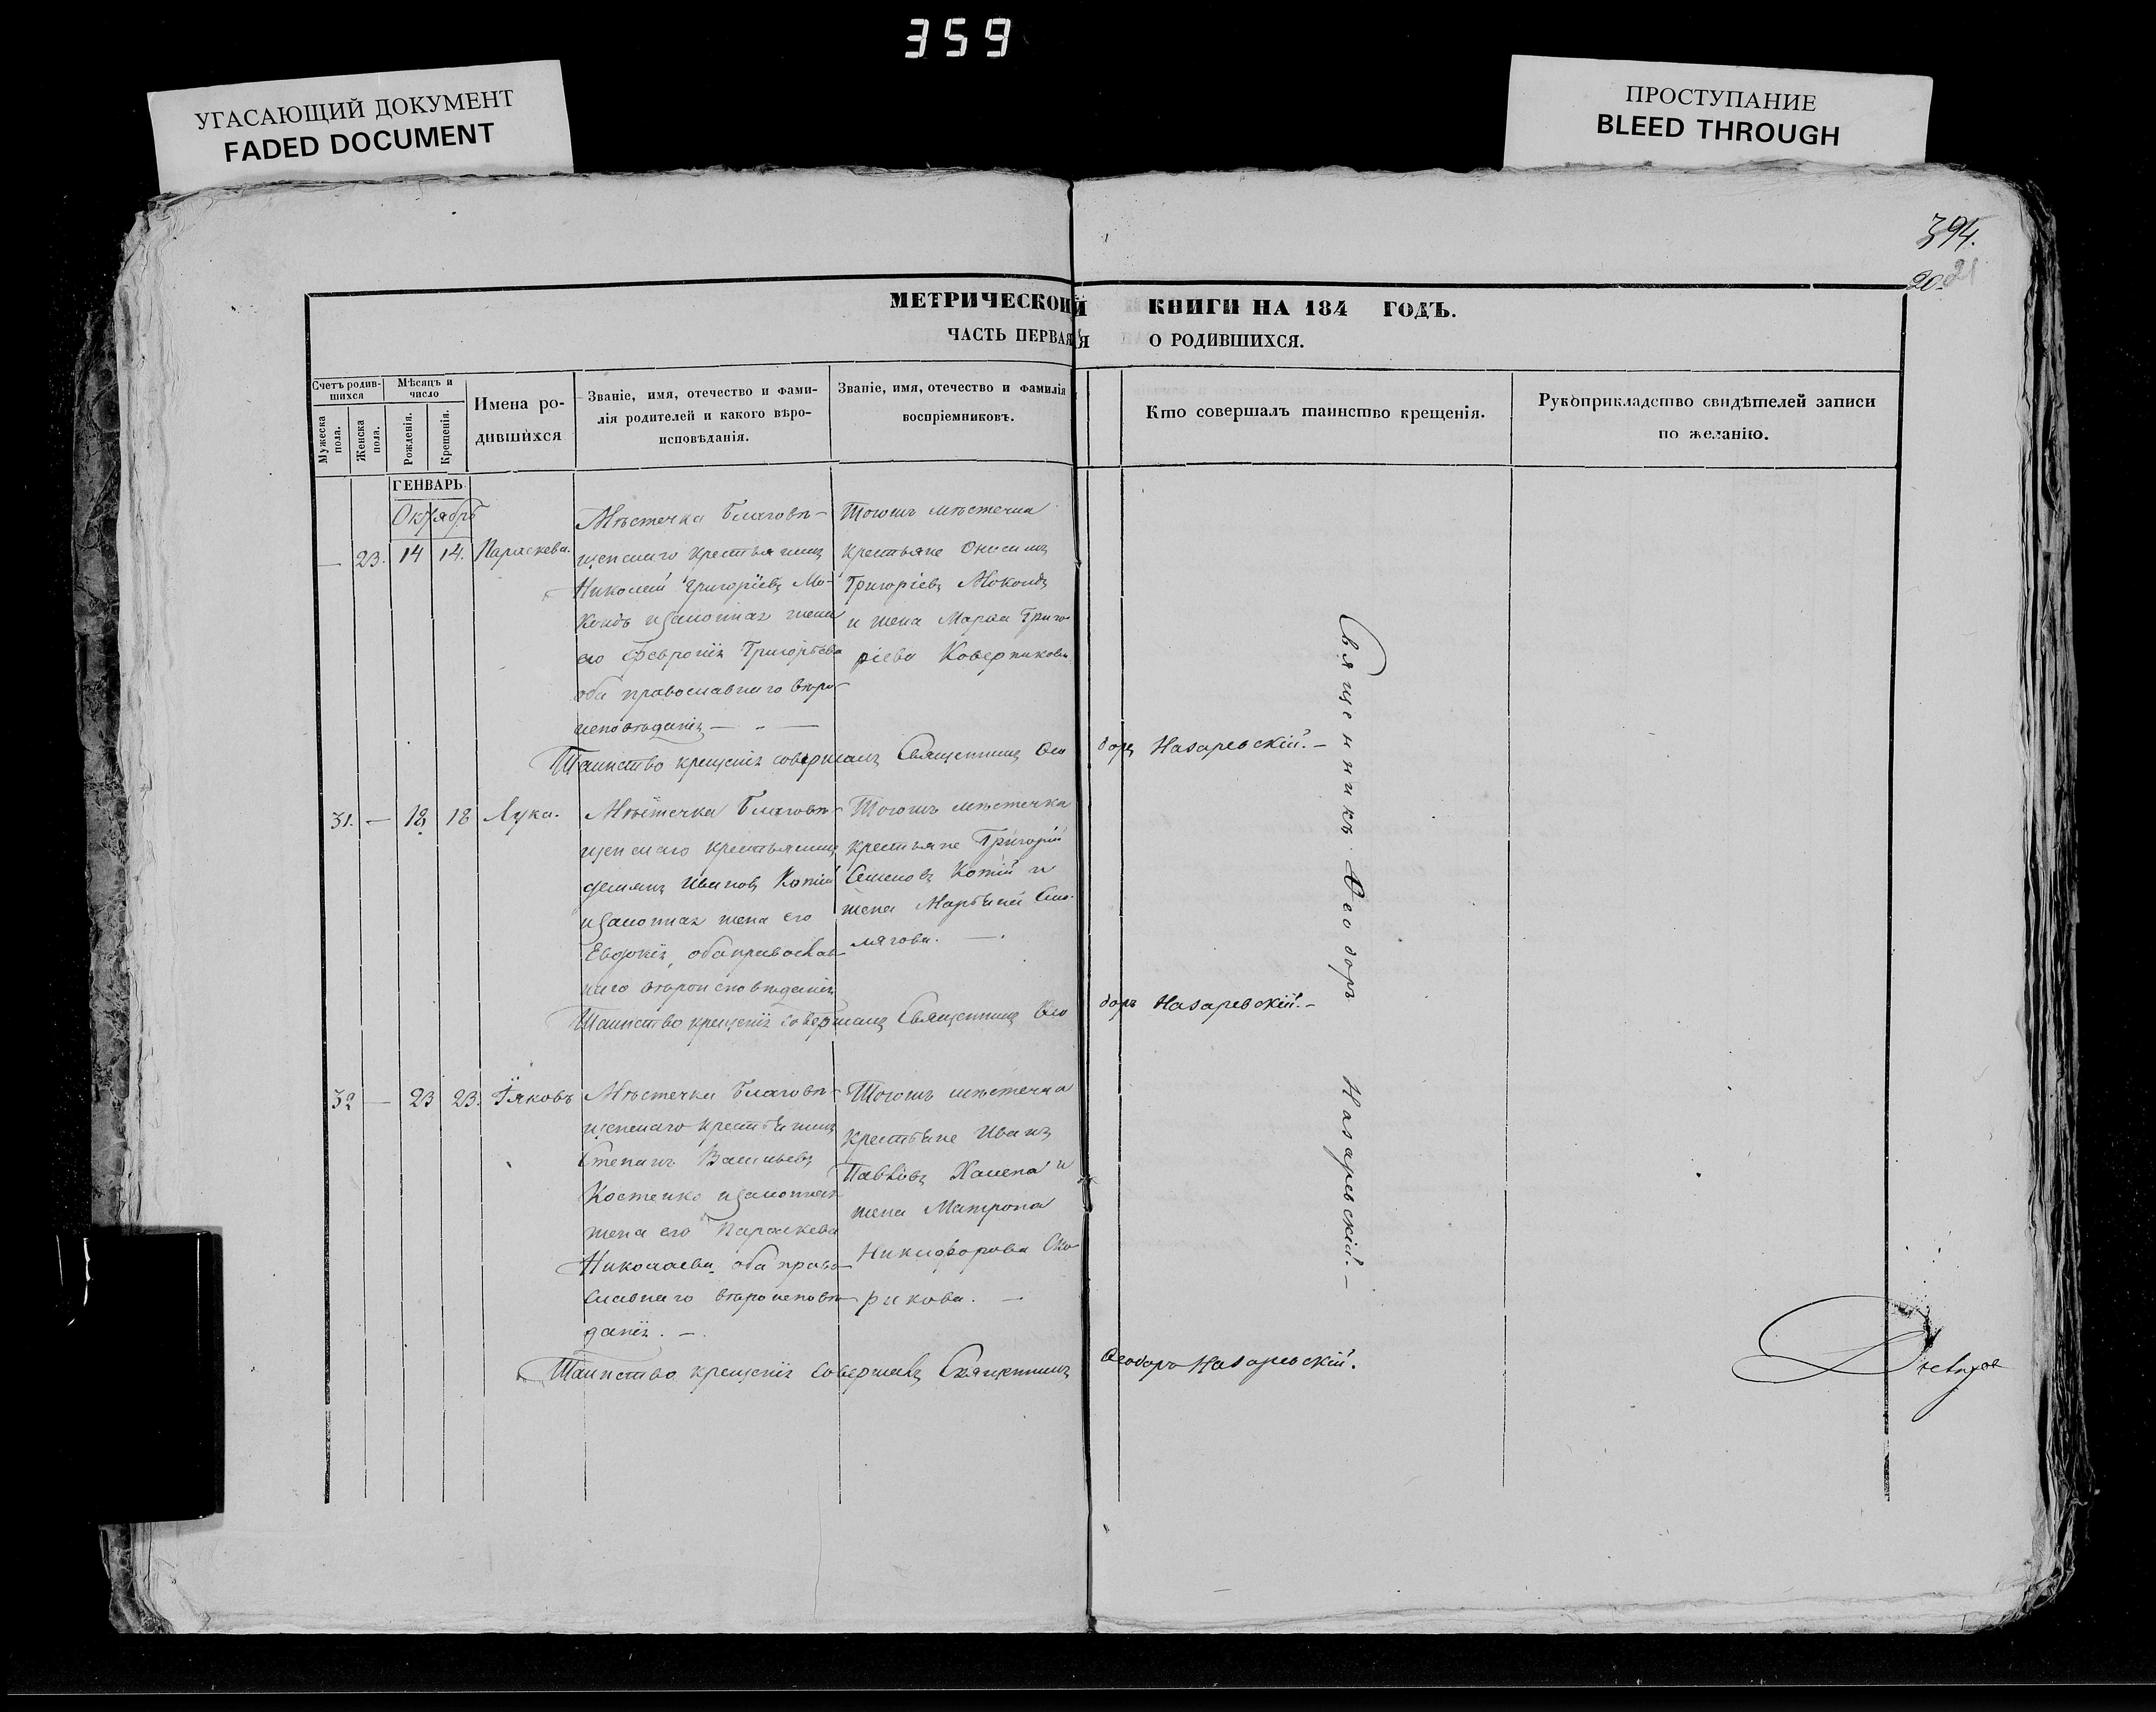 359
УГАСАЮЩИЙ ДОКУМЕНТ
FADED DOCUMENT
ПРОСТУПАНИЕ
BLEED THROUGH
394.
20. 21
МЕТРИЧЕСКОЙ КНИГИ НА 184 ГОДЪ.
ЧАСТЬ ПЕРВАЯ О РОДИВШИХСЯ.
Счетъ родив-
шихся
Мужеска пола.
Женска пола.
Мѣсяцъ и
число
Рожденія.
Крещенія.
Имена ро-
дившихся
Званіе, имя, отечество и фами-
лія родителей и какого вѣро-
исповѣданія.
Званіе, имя, отечество и фамилія
воспріемниковъ.
Кто совершалъ таинство крещенія.
Рукоприкладство свидѣтелей записи
по желанію.
ГЕНВАРЬ
Октябрь
— 23. 14 14. Параскева.
Мѣстечка Благовѣ-
щенскаго крестьянинъ
Николай Григоріевъ Мо-
кондъ и законная жена
его Февронія Григорьева
оба православнаго вѣро-
исповѣданія —
Тогожъ мѣстечка
крестьяне Онисимъ
Григоріевъ Мокондъ
и жена Марѳа Григо-
ріева
Таинство крещенія совершалъ Священникъ Ѳео доръ Назаревскій. —
31. — 18 18 Лука.
Мѣстечка Благовѣ-
щенскаго крестьянинъ
Демянъ Ивановъ Котій
и законная жена его
Евдокія, оба православ-
наго вѣроисповѣданія
Тогожъ мѣстечка
крестьяне Григорій
Семеновъ Котій и
жена
Таинство крещенія совершалъ Священникъ Ѳео доръ Назаревскій. —
32 — 23 23. Іяковъ
Мѣстечка Благовѣ-
щенскаго крестьянинъ
Степанъ Васильевъ
Костенко и законная
жена его Параскева
Николаева, оба право-
славнаго вѣроисповѣ-
данія. —
Тогожъ мѣстечка
крестьяне Иванъ
Павловъ Халепа и
жена Матрона
Никифорова Ско-
рикова. —
Таинство крещенія совершалъ Священникъ Ѳеодоръ Назаревскій.
Священникъ Ѳеодоръ Назаревскій. —